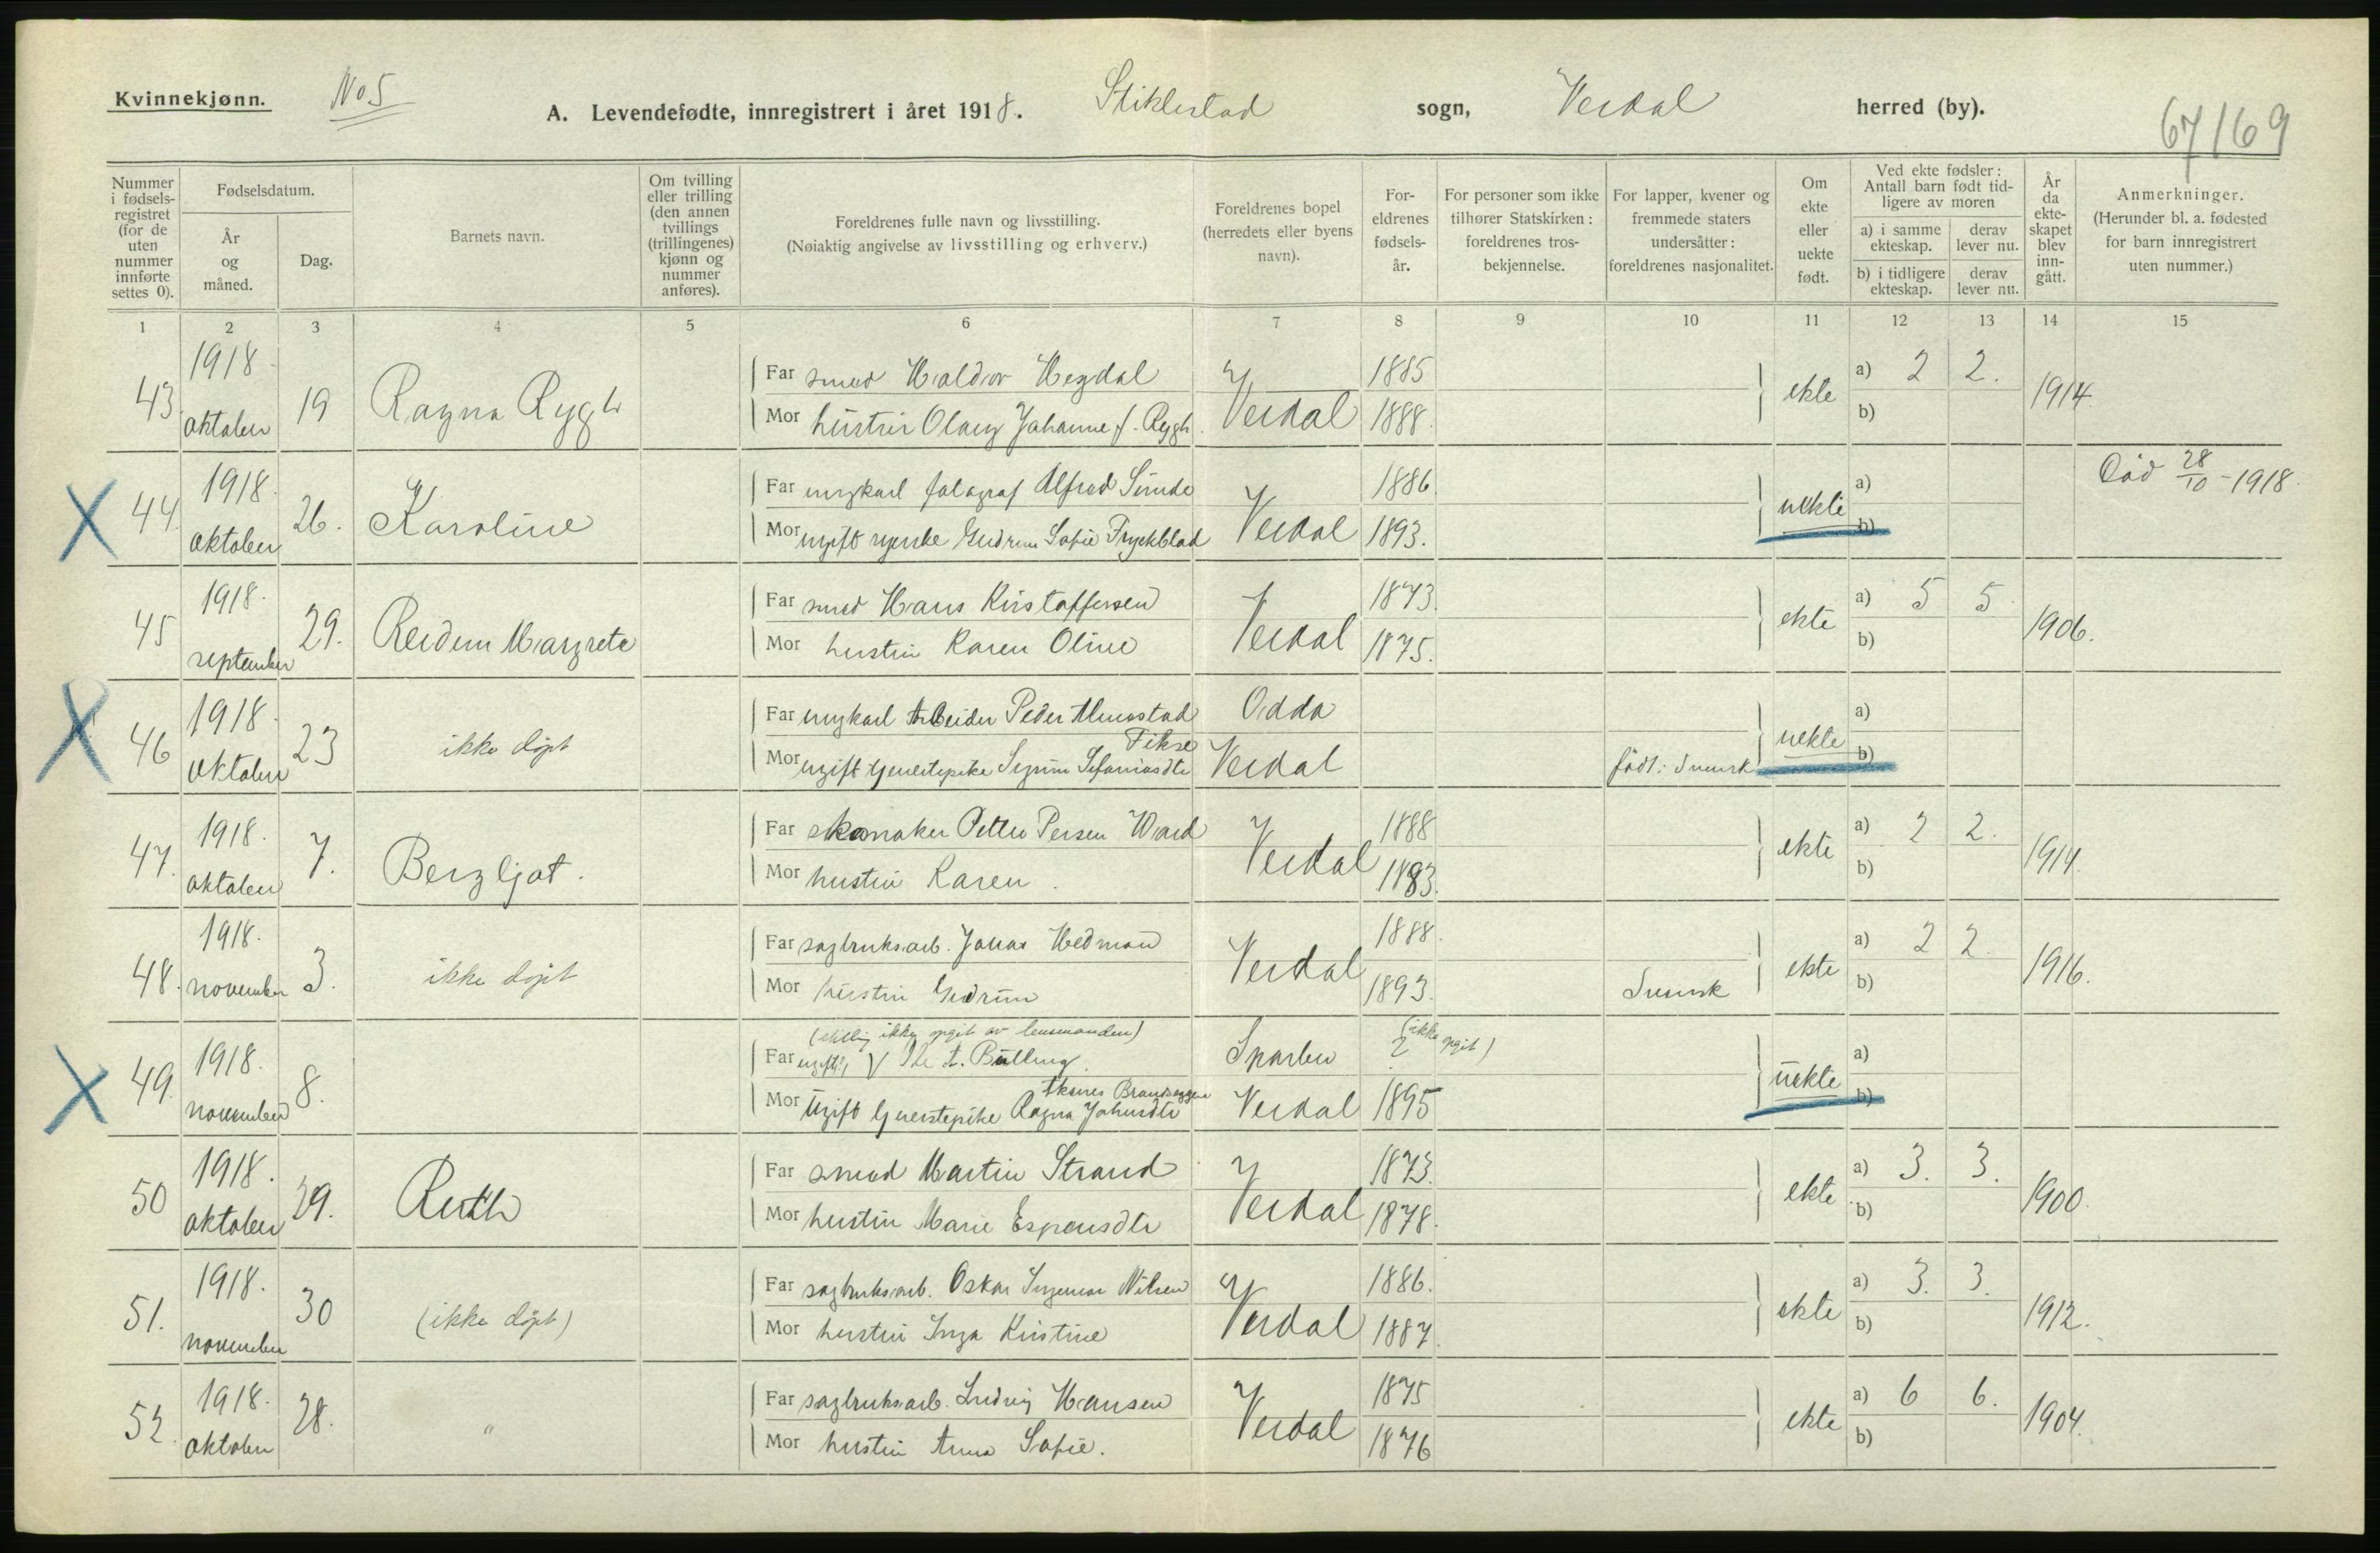 Kvinnekjønn.
No 5
A. Levendefødte, innregistrert i året 1918. Stiklestad sogn, Verdal herred (by).
67/169
Nummer i fødsels-registret (for de uten nummer innførte settes 0).
Fødselsdatum.
År og måned.
Dag.
Barnets navn.
Om tvilling eller trilling (den annen tvillings (trillingenes) kjønn og nummer anføres).
Foreldrenes fulle navn og livsstilling.
(Nøiaktig angivelse av livsstilling og erhverv.)
Foreldrenes bopel (herredets eller byens navn).
For-eldrenes fødsels-år.
For personer som ikke tilhører Statskirken: foreldrenes tros-bekjennelse.
For lapper, kvener og fremmede staters undersåtter: foreldrenes nasjonalitet.
Om ekte eller uekte født.
Ved ekte fødsler: Antall barn født tid-ligere av moren
a) i samme ekteskap.
derav lever nu.
b) i tidligere ekteskap.
derav lever nu.
År da ekte-skapet blev inn-gått.
Anmerkninger.
(Herunder bl. a. fødested for barn innregistrert uten nummer.)
1 2 3 4 5 6 7 8 9 10 11 12 13 14 15
43. 1918 oktober 19 Ragna Rygh
Far smed Haldor Hegdal 1885 a) 2 2.
Mor hustru Olaug Johanne f. Rygh. Verdal 1888. ekte b) 1914
X 44. 1918. oktober 26. Karoline
Far ungkarl fotograf Alfred Sunde 1886 a) Død 28/10 - 1918.
Mor ugift syerske Gudrun Sofie Fryckblad Verdal 1893. uekte b)
45 1918. september 29. Reidun Margrete
Far smed Hans Kristoffersen 1873. a) 5 5
Mor hustru Karen Oline Verdal 1875. ekte b) 1906.
X 46 1918. oktober 23 ikke døpt
Far ungkarl Arbeider Peder Odda a)
Mor ugift tjenestepike Verdal født: Svensk uekte b)
47. 1918. oktober 7. Bergljot.
Far skomaker Petter Persen Ward 1888 a) 2 2.
Mor hustru Karen. Verdal 1883. ekte b) 1914.
48. 1918. november 3. ikke døpt
Far sagbruksarb. Jonas Hedman 1888. a) 2 2
Mor hustru Gudrun Verdal 1893. Svensk ekte b) 1916.
(stilling ikke opgit av lensmanden) (ikke opgit)
X 49. 1918. november 8.
Far ugift, Sparbu ? a)
Mor Ugift tjenestepike Ragna Johnsdtr Verdal 1895 uekte b)
50 1918. oktober 29. Ruth
Far smed Martin Strand 1873. a) 3. 3.
Mor hustru Marie Espensdtr Verdal 1878. ekte b) 1900.
51. 1918. november 30 (ikke døpt)
Far sagbruksarb. Oskar Ingemar Nilsen 1886. a) 3. 3.
Mor hustru Inga Kristine Verdal 1887. ekte b) 1912.
52. 1918. oktober 28. "
Far sagbruksarb. Ludvig Hansen 1875 a) 6 6.
Mor hustru Anna Sofie. Verdal 1876 ekte b) 1904.